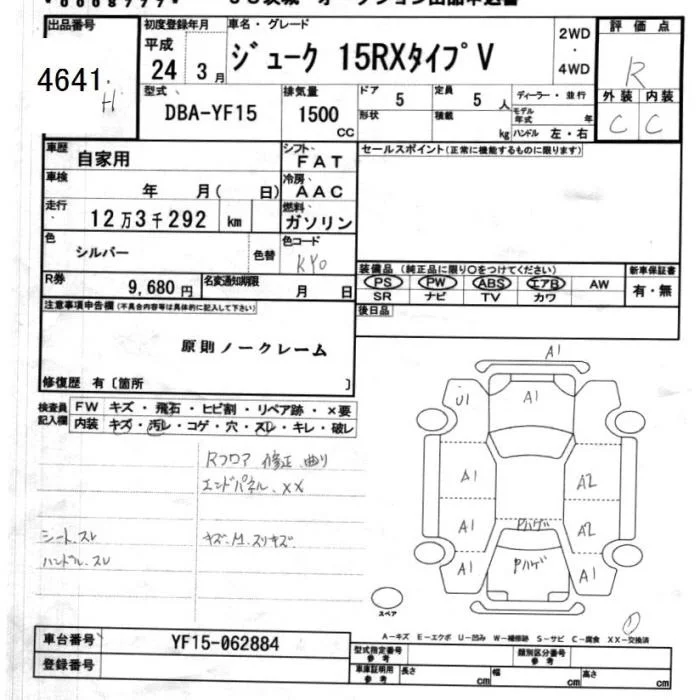 出品番号 初度登録年月 車名・グレード 2WD・4WD 評価点
4641 H 平成 24 3月 ジューク 15RXタイプV R
型式 DBA-YF15 排気量 1500 CC ドア 5 定員 5 人 ディーラー・並行 外装 内装
形状 積載 kg モデル年式 年 ハンドル 左・右 C C
車歴 自家用 シフト FAT セールスポイント(正常に機能するものに限ります)
車検 年 月( 日) 冷房 AAC
走行 12万3千292 km 燃料 ガソリン
色 シルバー 色替 色コード KY0
R券 9,680円 名変通知期限 月 日
装備品(純正品に限り〇をつけてください) 新車保証書
PS PW ABS エアB AW 有・無
SR ナビ TV カワ
注意事項申告欄(不具合内容等は具体的に記入して下さい) 後日品
原則ノークレーム
修復歴 有〔箇所 〕
検査員記入欄 FW キズ・飛石・ヒビ割・リペア跡・×要
内装 キズ・汚レ・コゲ・穴・スレ・キレ・破レ
Rフロア 修正 曲り
エンドパネル XX
シート.スレ キズ.M.スリキズ
ハンドル.スレ
A1
U1 A1
A1 A2
A1 Pハゲ A2
A1 Pハゲ A1
スペア
A-キズ E-エクボ U-凹み W-補修跡 S-サビ C-腐食 XX-交換済
車台番号 YF15-062884 型式指定番号 参考 類別区分番号 参考
登録番号 車庫証明用 参考 長さ cm 幅 cm 高さ cm